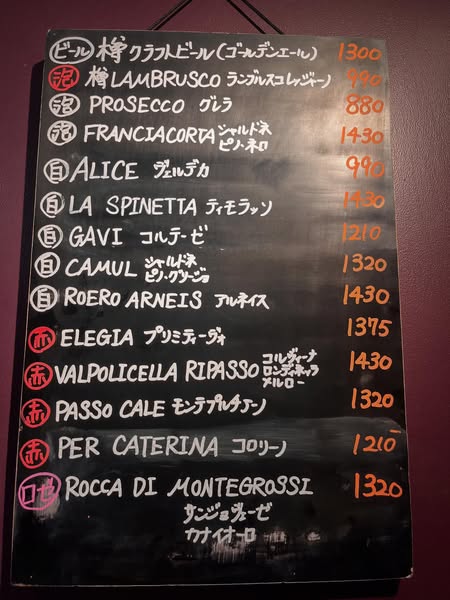 ビール 樽クラフトビール(ゴールデンエール) 1300
泡 樽LAMBRUSCO ランブルスコレッジャーノ 990
泡 PROSECCO グレラ 880
泡 FRANCIACORTA シャルドネ ピノ・ネロ 1430
白 ALICE ヴェルデカ 990
白 LA SPINETTA ティモラッソ 1430
白 GAVI コルテーゼ 1210
白 CAMUL シャルドネ ピノ・グリージョ 1320
白 ROERO ARNEIS アルネイス 1430
赤 ELEGIA プリミティーヴォ 1375
赤 VALPOLICELLA RIPASSO コルヴィーナ ロンディネッラ メルロー 1430
赤 PASSO CALE モンテプルチアーノ 1320
赤 PER CATERINA コロリーノ 1210
ロゼ ROCCA DI MONTEGROSSI 1320
サンジョヴェーゼ
カナイオーロ